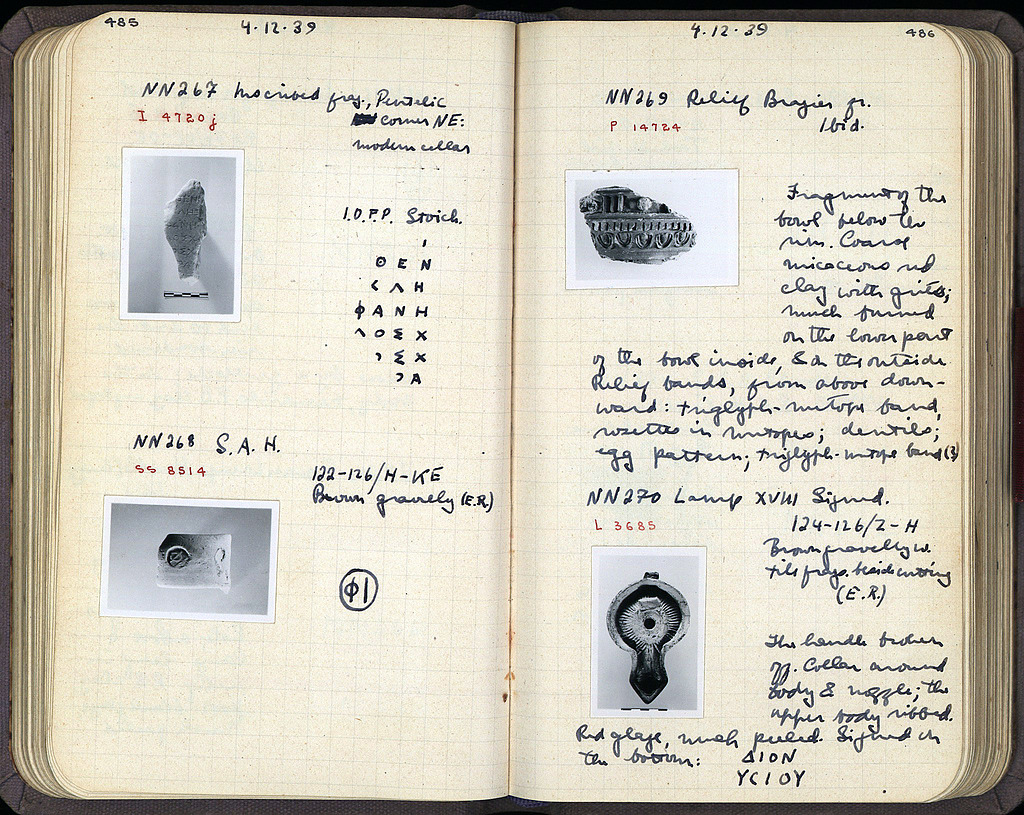 485
4·12·39
NN267 Inscribed frag., Pentelic
I 4720 j
corner NE:
modern cellar
I.O.P.P. Stoich.
Ι
Θ Ε Ν
Λ Η
Φ Α Ν Η
Ο Σ Χ
Σ Χ
Α
NN268 S.A.H.
SS 8514
122-126/H-KE
Brown gravelly (E.R.)
ΦΙ
4·12·39
486
NN269 Relief Brazier fr.
P 14724
Ibid.
Fragment of the
bowl below the
rim. Coarse
micaceous red
clay with grits;
much burned
on the lower part
of the bowl inside, & on the outside
Relief bands, from above down-
ward: triglyph-metope band,
rosettes in metopes; dentils;
egg pattern; triglyph-metope band (?)
NN270 Lamp XVIII Signed.
L 3685
124-126/Z-H
Brown gravelly w.
tile frags. beside cutting
(E.R.)
The handle broken
off. Collar around
body & nozzle; the
upper body ribbed.
Red glaze, much peeled. Signed on
the bottom: ΔΙΟΝ
ΥϹΙΟΥ